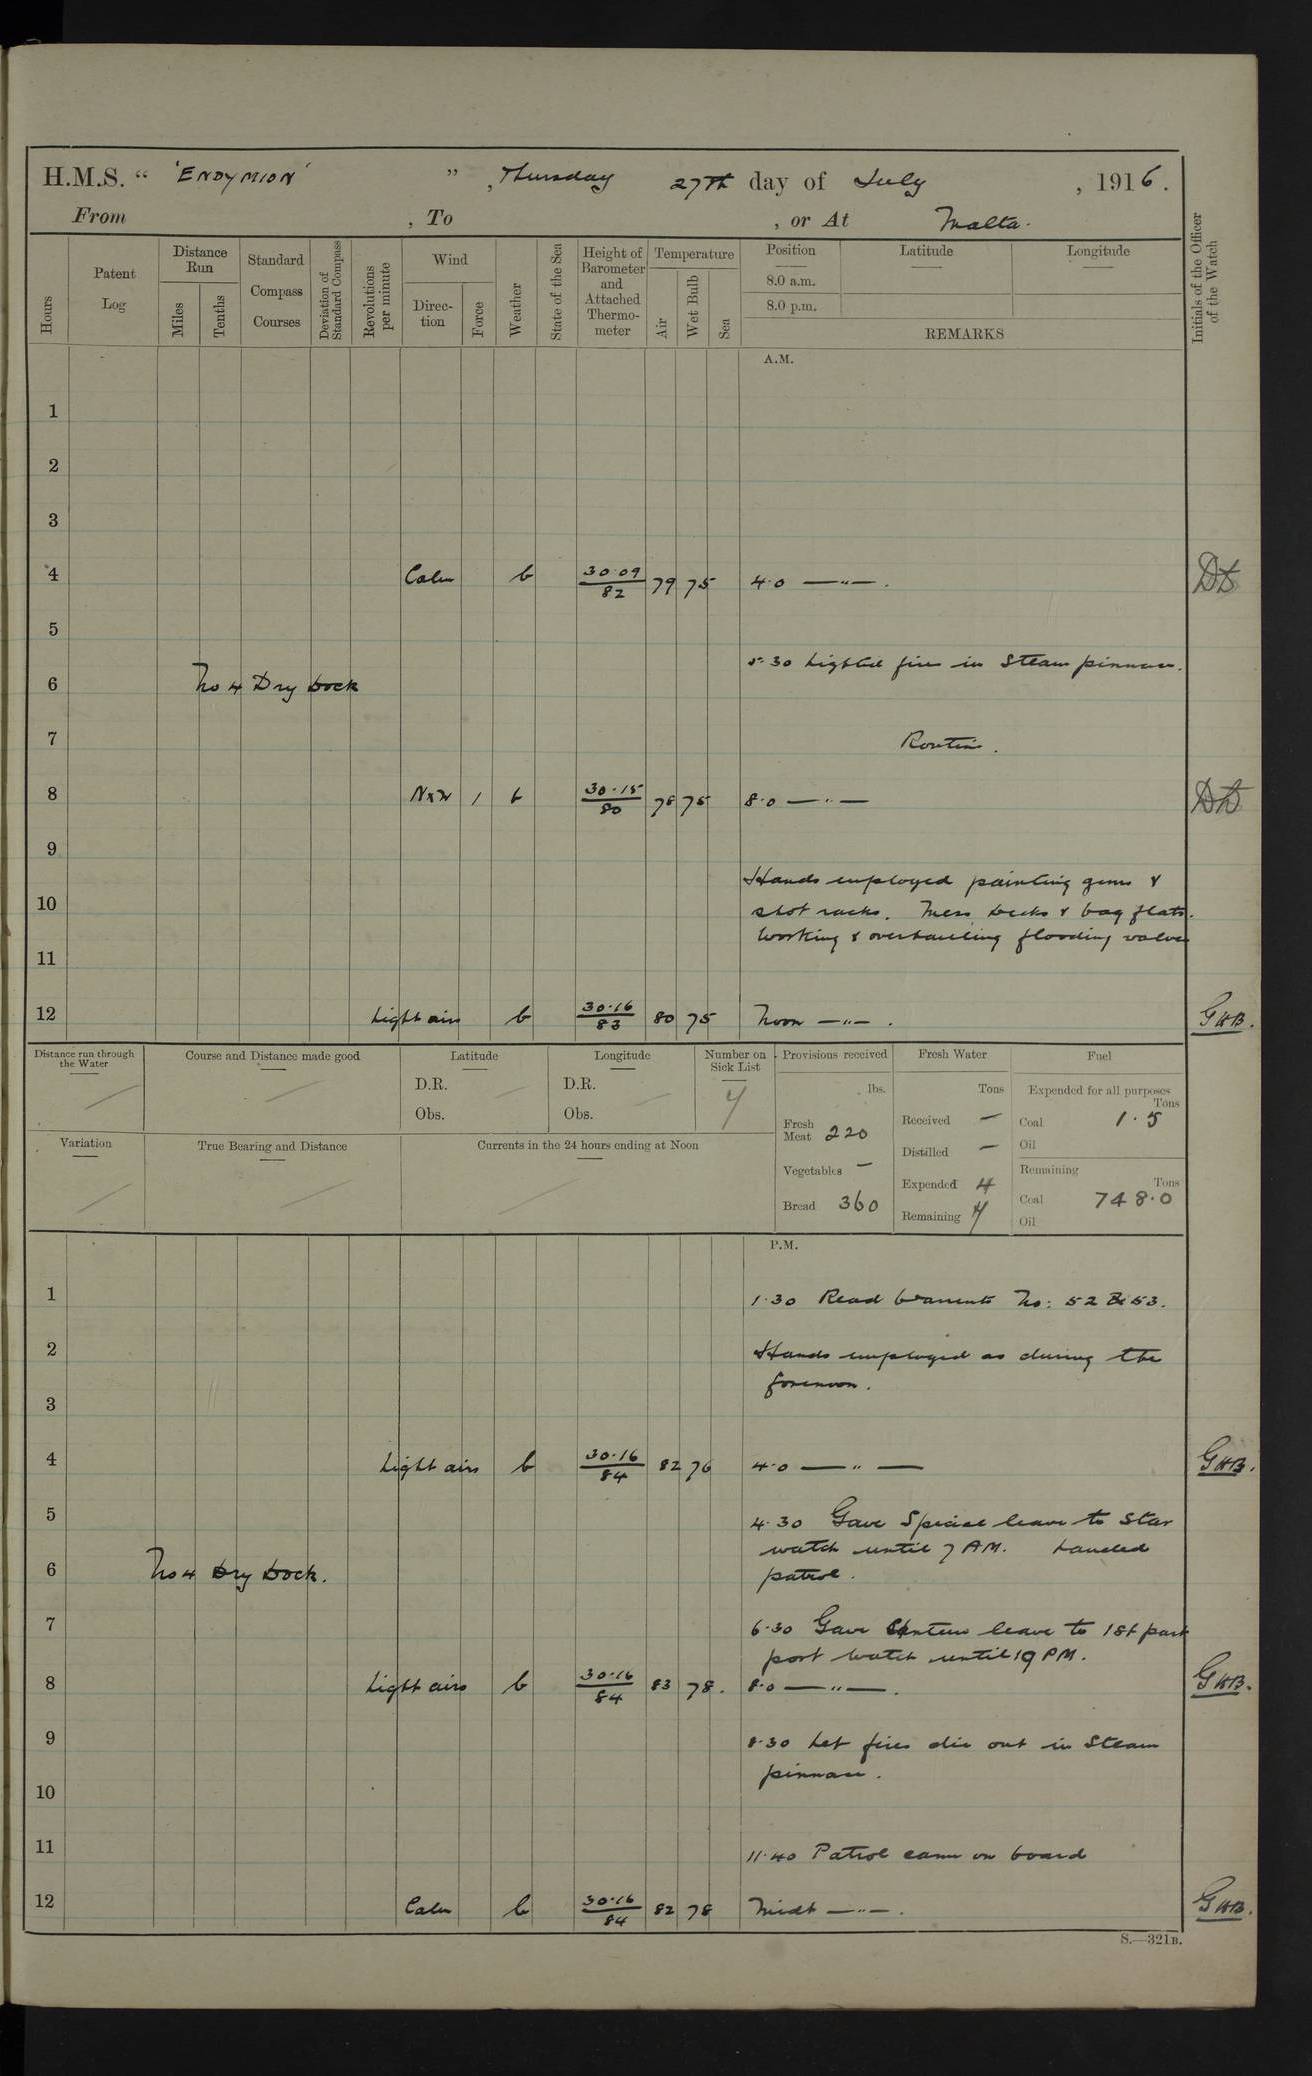 H.M.S. " 'ENDYMION' " , Thursday 27th day of July , 1916.
From , To , or At Malta.
Hours
Patent Log
Distance Run
Miles
Tenths
Standard Compass Courses
Deviation of Standard Compass
Revolutions per minute
Wind
Direction
Force
Weather
State of the Sea
Height of Barometer and Attached Thermometer
Temperature
Air
Wet Bulb
Sea
Position
Latitude
Longitude
8.0 a.m.
8.0 p.m.
REMARKS
Initials of the Officer of the Watch
A.M.
1
2
3
4 Calm b 30.09/82 79 75 4.0 —"—.
5
5.30 Lighted fires in Steam pinnace.
6 No 4 Dry Dock
7 Routine.
8 NxW 1 b 30.15/80 78 75 8.0 —"—
9
Hands employed painting guns &
10 shot racks. Mess decks & bag flats.
Working & overhauling flooding valves
11
12 Light airs b 30.16/83 80 75 Noon —"—. GHB.
Distance run through the Water
Course and Distance made good
Latitude
D.R.
Obs.
Longitude
D.R.
Obs.
Number on Sick List
4
Variation
True Bearing and Distance
Currents in the 24 hours ending at Noon
Provisions received
lbs.
Fresh Meat 220
Vegetables —
Bread 360
Fresh Water
Tons
Received —
Distilled —
Expended 4
Remaining
Fuel
Expended for all purposes
Tons
Coal 1.5
Oil
Remaining
Tons
Coal 748.0
Oil
P.M.
1 1.30 Read Warrants No: 52 & 53.
2 Hands employed as during the
forenoon.
3
4 Light airs b 30.16/84 82 76 4.0 —"— GHB.
5 4.30 Gave Special leave to Star
watch until 7 AM. Landed
6 No 4 Dry Dock. patrol.
7 6.30 Gave Canteen leave to 1st part
port watch until 9 PM.
8 Light airs b 30.16/84 83 78. 8.0 —"—. GHB.
9 8.30 Let fires die out in Steam
pinnace.
10
11 11.40 Patrol came on board
12 Calm b 30.16/84 82 78 Midt —"—. GHB.
S.—321B.